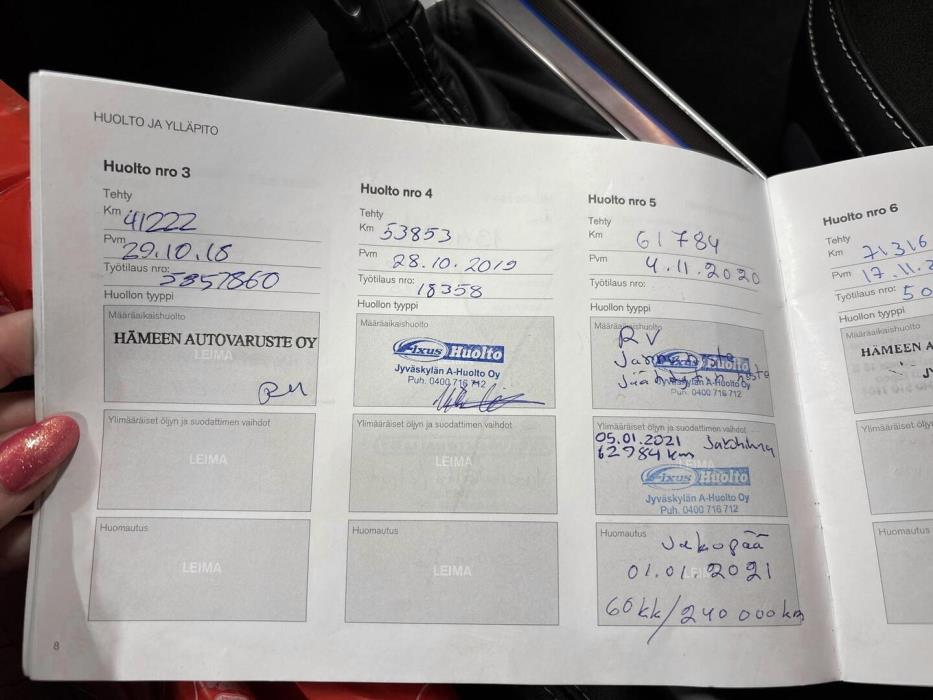 HUOLTO JA YLLÄPITO
Huolto nro 3
Tehty
Km 41222
Pvm 29.10.18
Työtilaus nro: 5357860
Huollon tyyppi
Määräaikaishuolto
HÄMEEN AUTOVARUSTE OY
LEIMA
Ylimääräiset öljyn ja suodattimen vaihdot
LEIMA
Huomautus
LEIMA
8
Huolto nro 4
Tehty
Km 53853
Pvm 28.10.2019
Työtilaus nro: 18358
Huollon tyyppi
Määräaikaishuolto
Fixus Huolto
Jyväskylän A-Huolto Oy
Puh. 0400 716 712
Ylimääräiset öljyn ja suodattimen vaihdot
LEIMA
Huomautus
LEIMA
Huolto nro 5
Tehty
Km 61784
Pvm 4.11.2020
Työtilaus nro:
Huollon tyyppi
Määräaikaishuolto
RV
Jarruneste
Fixus Huolto
Jäähdytinneste
Jyväskylän A-Huolto Oy
Puh. 0400 716 712
Ylimääräiset öljyn ja suodattimen vaihdot
05.01.2021 Jakohihna
62984 km
LEIMA
Fixus Huolto
Jyväskylän A-Huolto Oy
Puh. 0400 716 712
Huomautus
Jakopää
LEIMA
01.01.2021
60kk/240 000km
Huolto nro 6
Tehty
Km 71316
Pvm 17.11.2
Työtilaus nro: 50
Huollon tyyppi
Määräaikaishuolto
HÄMEEN A
Ylimääräiset öljyn ja su
Huomautus